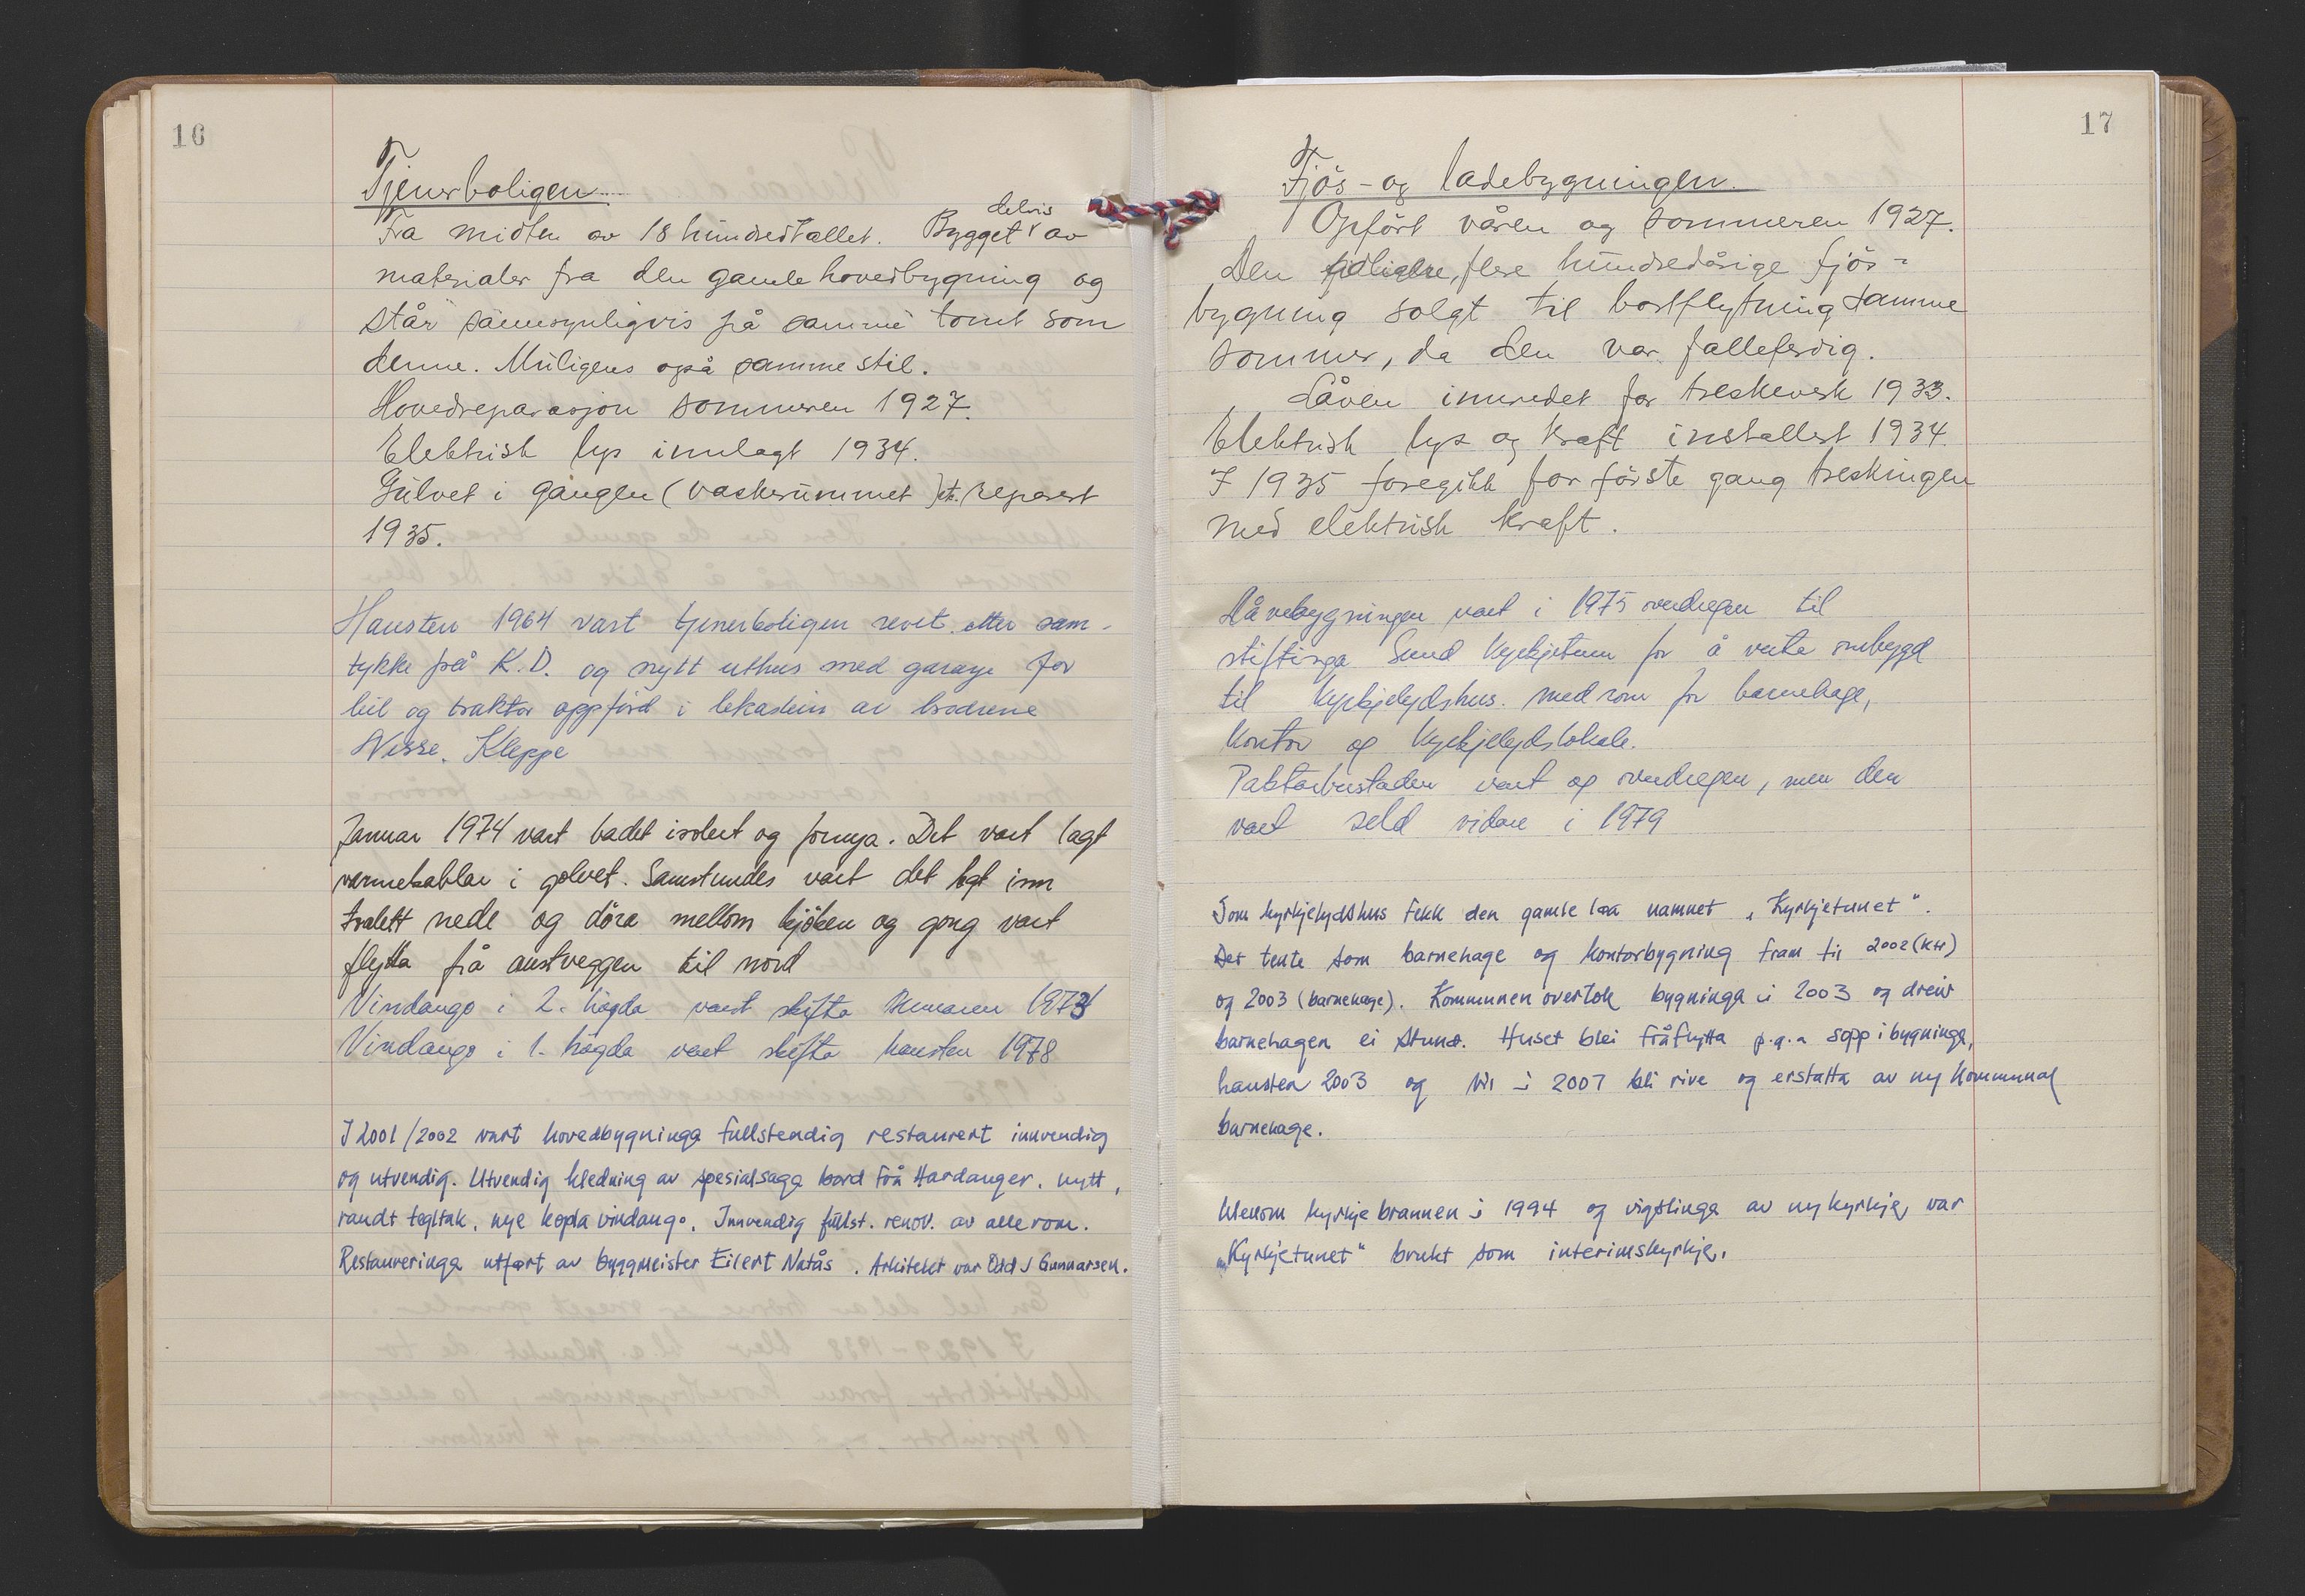 16
Tjenerboligen.
Fra midten av 18 hundredtallet. Bygget delvis av
materialer fra den gamle hovedbygning og
står sannsynligvis på samme tomt som
denne. Muligens også samme stil.
Hovedreparasjon sommeren 1927.
Elektrisk lys innlagt 1934.
Gulvet i gangen (vaskerummet) etc. reparert
1935.
Hausten 1964 vart tjenerboligen revet etter sam-
tykke frå K.D. og nytt uthus med garage for
bil og traktor oppförd i lekastein av brödrene
Nesse, Kleppe
Januar 1974 vart badet isolert og fornya. Det vart lagt
varmekablar i golvet. Samstundes vart det lagt inn
toalett nede og döra mellom kjöken og gong vart
flytta frå austveggen til nord
Vindaugo i 2. högda vart skifta sumaren 1973
Vindaugo i 1. högda vart skifta hausten 1978
I 2001/2002 vart hovedbygninga fullstendig restaurert innvendig
og utvendig. Utvendig kledning av spesialsaga bord frå Hardanger, nytt,
raudt tegltak, nye kopla vindaugo. Innvendig fullst. renov. av alle rom.
Restaureringa utført av byggmeister Eilert Natås. Arkitekt var Odd J Gunnarsen.
17
Fjös- og ladebygningen.
Opfört våren og sommeren 1927.
Den tidligere, flere hundredårige fjös-
bygning solgt til bortflytning samme
sommer, da den var falleferdig.
Låven innredet for treskeverk 1933.
Elektrisk lys og kraft installert 1934.
I 1935 foregikk for förste gang treskingen
med elektrisk kraft.
Låvebygningen vart i 1975 overdregen til
stiftinga Sund Kyrkjetun for å verta ombygd
til kyrkjelydshus med rom for barnehage,
kontor og kyrkjelydslokale.
Paktarbustaden vart og overdregen, men den
vart seld vidare i 1979
Som kyrkjelydshus fekk den gamle løa namnet „Kyrkjetunet".
Det tente som barnehage og kontorbygning fram til 2002 (ktr)
og 2003 (barnehage). Kommunen overtok bygninga i 2003 og dreiv
barnehagen ei stund. Huset blei fråflytta p.g.a sopp i bygninga,
hausten 2003 og vil i 2007 bli rive og erstatta av ny kommunal
barnehage.
Mellom kyrkjebrannen i 1994 og vigslinga av ny kyrkje, var
„Kyrkjetunet" brukt som interimskyrkje.